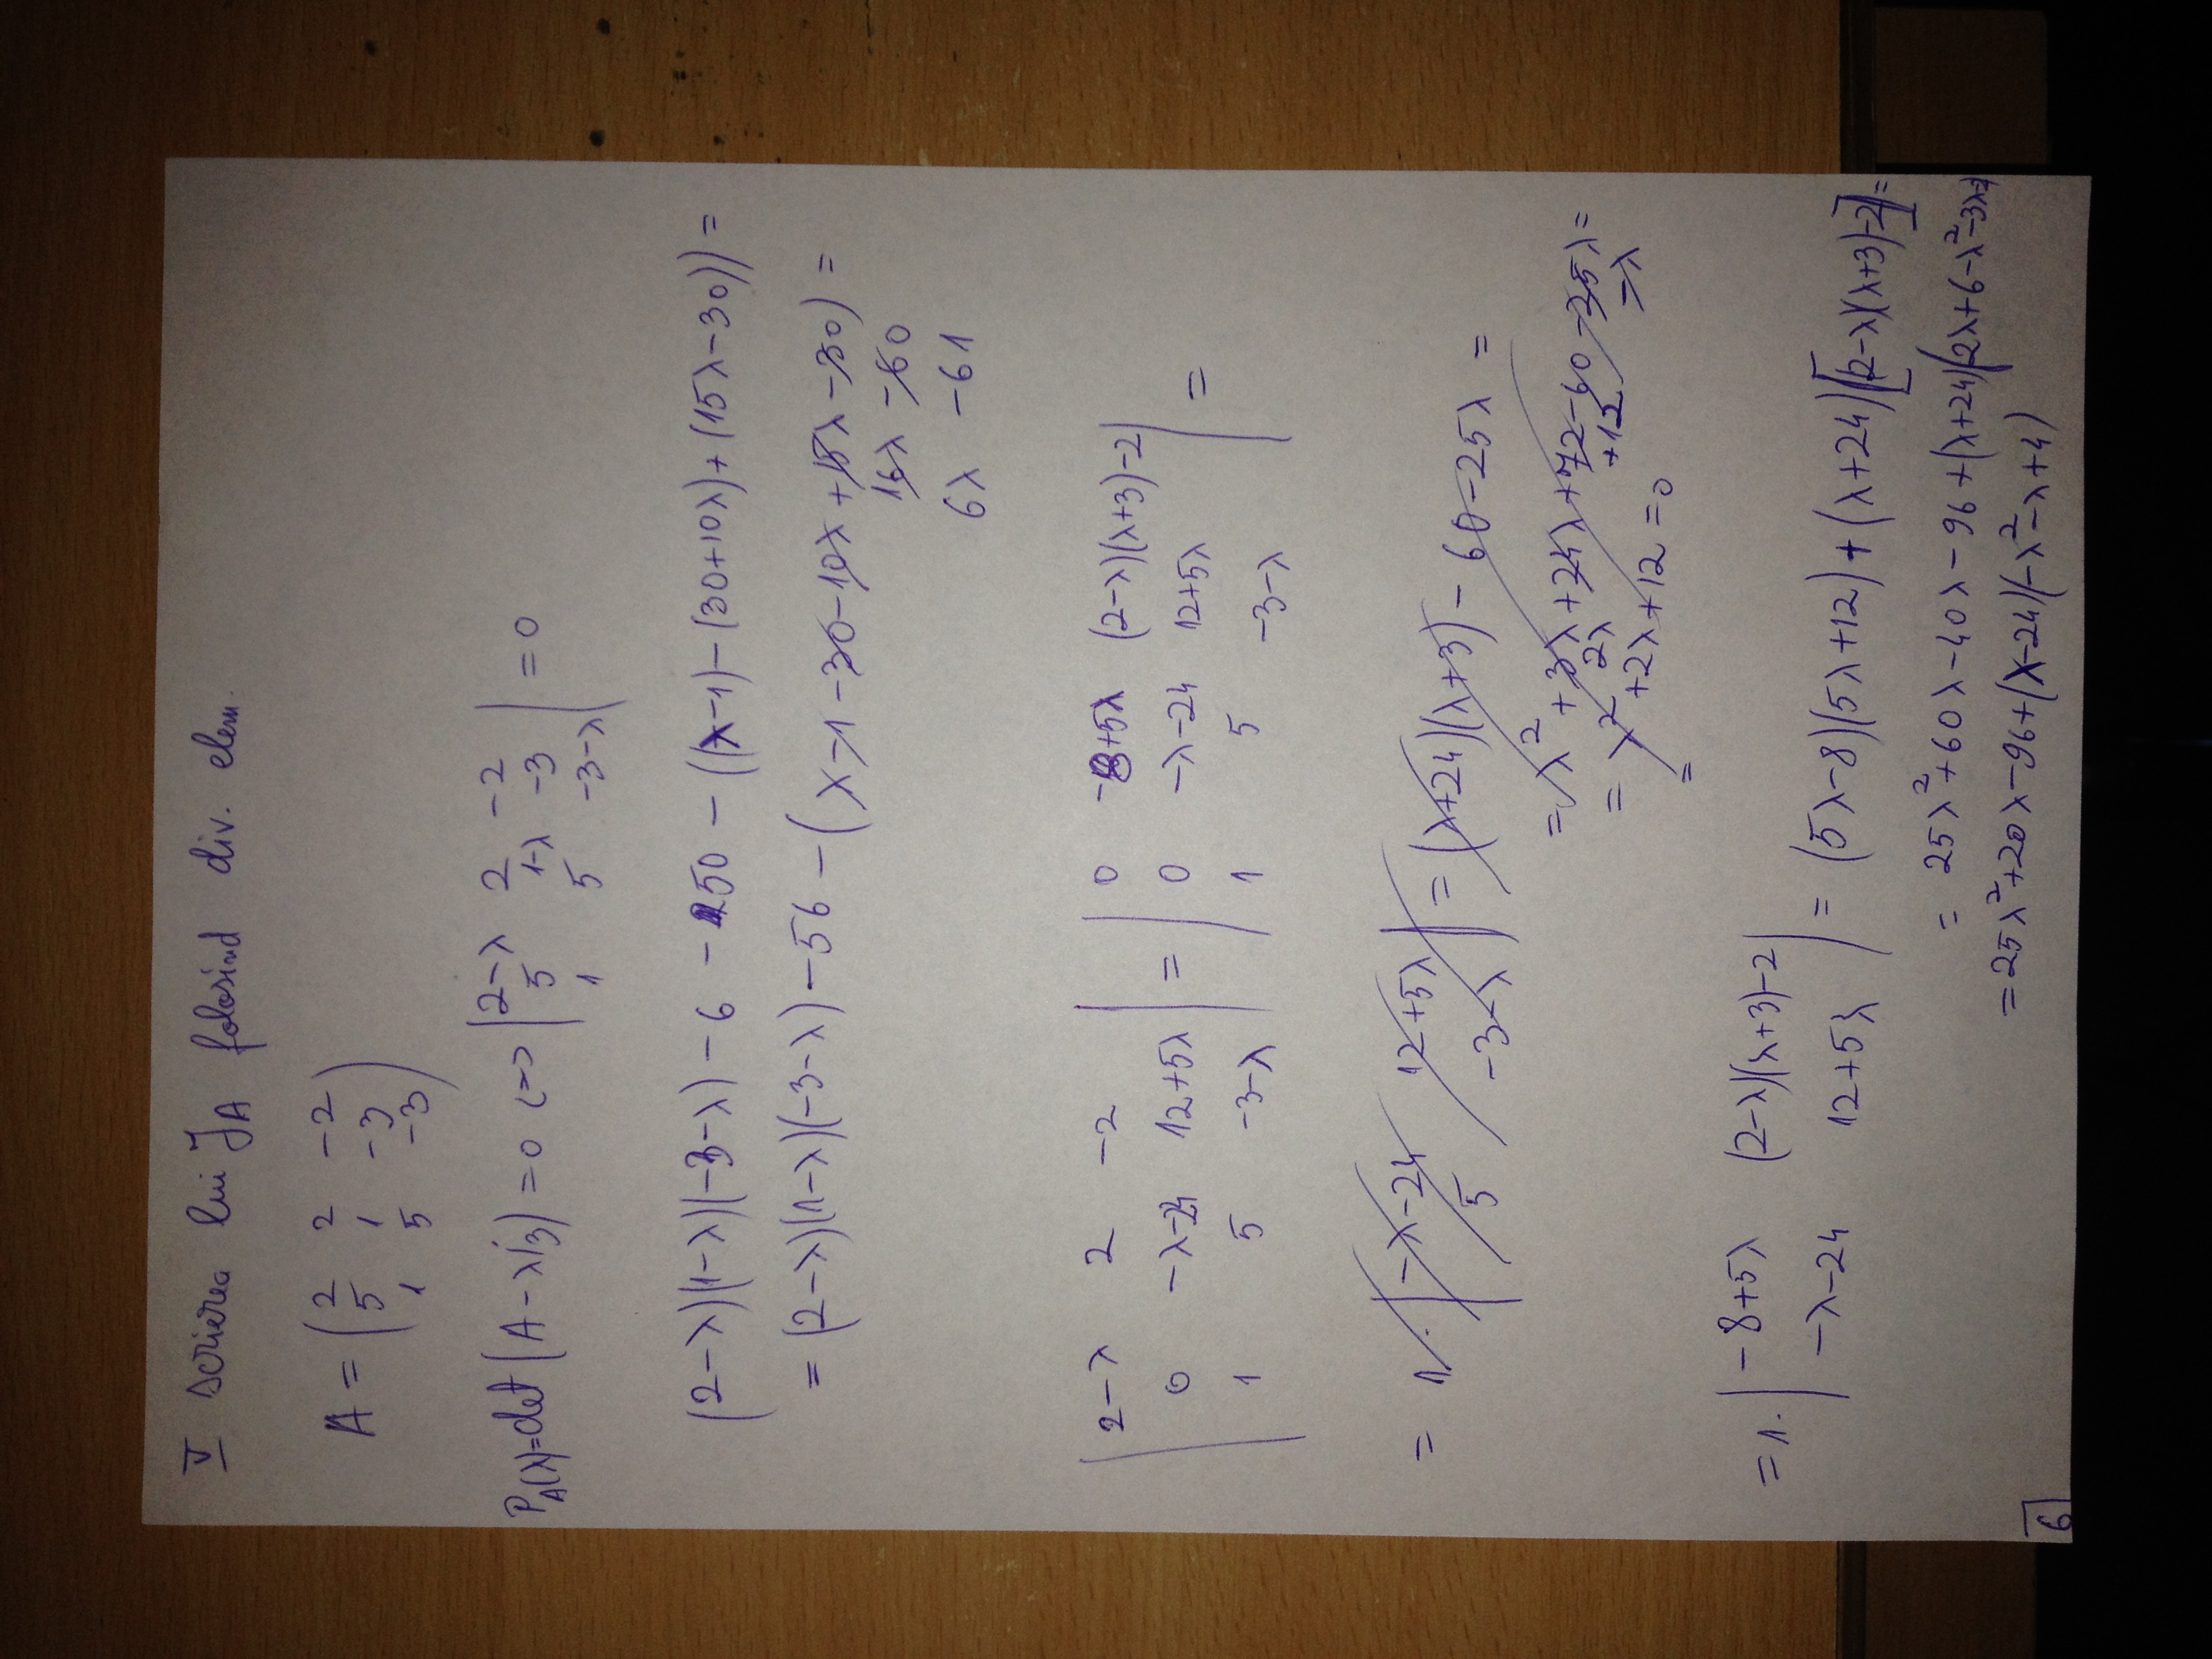 V scrierea lui J_A folosind div. elem.
A = ( 2 2 -2
5 1 -3
1 5 -3 )
P_A(λ)=det (A-λI_3) = 0 <=> | 2-λ 2 -2
5 1-λ -3
1 5 -3-λ | = 0
(2-λ)(1-λ)(-3-λ) -6 -50 -((λ-1)-(30+10λ)+(15λ-30)) =
= (2-λ)(1-λ)(-3-λ) -56 -(λ-1-30-10λ+15λ-30) =
16λ -60
6λ -61
| 2-λ 2 -2 | = | 0 -8+5λ (2-λ)(λ+3)-2 | =
0 -λ-24 12+5λ 0 -λ-24 12+5λ
1 5 -3-λ 1 5 -3-λ
= 1· | -λ-24 12+5λ | = (λ+24)(λ+3) - 60-25λ =
5 -3-λ
= λ²+3λ+24λ+72-60-25λ=
2λ +12 =λ
= λ²+2λ+12 =0
=
=1· | -8+5λ (2-λ)(λ+3)-2 |
-λ-24 12+5λ = (5λ-8)(5λ+12)+(λ+24)[(2-λ)(λ+3)-2]=
= 25λ²+60λ-40λ-96+(λ+24)(2λ+6-λ²-3λ-2)
=25λ²+20λ-96+(λ-24)(-λ²-λ+4)
6